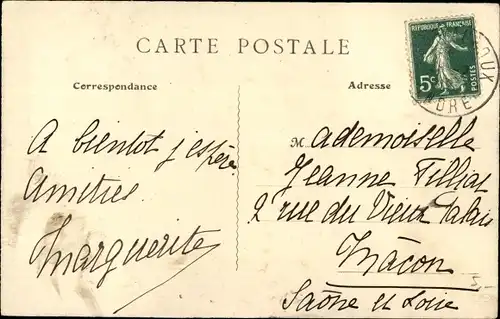 CARTE POSTALE
Correspondance
Adresse
RÉPUBLIQUE FRANÇAISE
5c
POSTES
OUX
NDRE
A bientot j'espère
Amitiés
Marguerite
Mademoiselle
Jeanne Filliat
2 rue du Vieux Palais
Mâcon
Saône et Loire